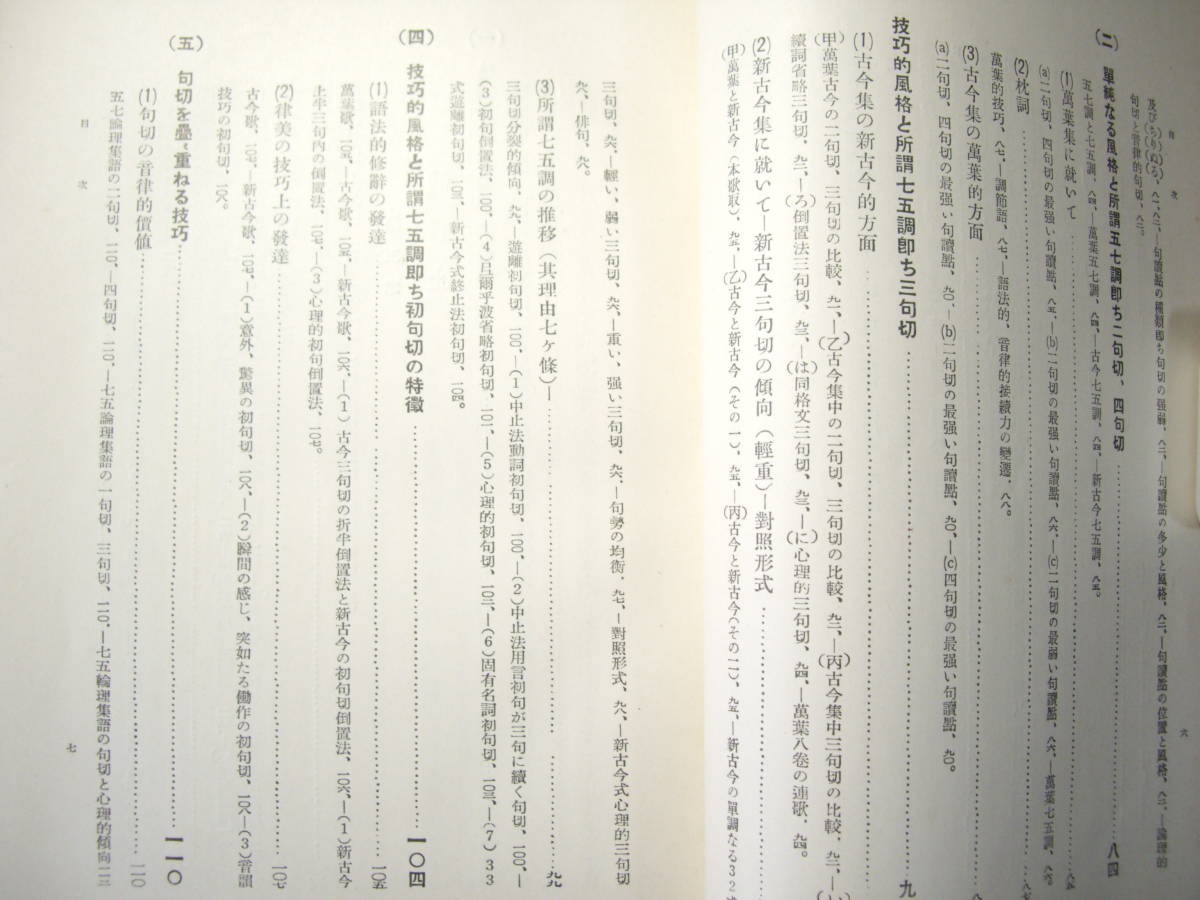 目次
六
及び(ちりぬる)、八一、八二、—句讀點の種類卽ち句切の强弱、八二、—句讀點の多少と風格、八三、—句讀點の位置と風格、八三、—論理的
句切と音律的句切、八三。
(二) 單純なる風格と所謂五七調卽ち二句切、四句切……八四
五七調と七五調、八四、—萬葉五七調、八四、—古今七五調、八四、—新古今七五調、八五。
(1)萬葉集に就いて……八五
(a)二句切、四句切の最强い句讀點、八五、—(b)二句切の最强い句讀點、八六、—(c)二句切の最弱い句讀點、八六、—萬葉七五調、八六。
(2)枕詞……
萬葉的技巧、八七、—調節語、八七、—語法的、音律的接續力の變遷、八八。
(3)古今集の萬葉的方面……
(a)二句切、四句切の最强い句讀點、九〇、—(b)二句切の最强い句讀點、九〇、—(c)四句切の最强い句讀點、九〇。
技巧的風格と所謂七五調卽ち三句切……九
(1)古今集の新古今的方面……
(甲)萬葉古今の二句切、三句切の比較、九一、—(乙)古今集中の二句切、三句切の比較、九二、—(丙)古今集中三句切の比較、九二、—(い)
續詞省略三句切、九二、—(ろ)倒置法三句切、九三、—(は)同格文三句切、九三、—(に)心理的三句切、九四、—萬葉八卷の連歌、九四。
(2)新古今集に就いて—新古今三句切の傾向(輕重)—對照形式……
(甲)萬葉と新古今(本歌取)、九五、—(乙)古今と新古今(その一)、九五、—(丙)古今と新古今(その二)、九五、—新古今の單調なる32
三句切、九六、—輕い、弱い三句切、九六、—重い、强い三句切、九六、—句勢の均衡、九七、—對照形式、九八、—新古今式心理的三句切
九八、—俳句、九八。
(3)所謂七五調の推移(其理由七ヶ條)—……九九
三句切分裂的傾向、九九、—遊離初句切、一〇〇、—(1)中止法動詞初句切、一〇〇、—(2)中止法用言初句が三句に續く句切、一〇〇、—
(3)初句倒置法、一〇〇、—(4)弖爾乎波省略初句切、一〇二、—(5)心理的初句切、一〇三、—(6)固有名詞初句切、一〇三、—(7)33
式遊離初句切、一〇三、—新古今式終止法初句切、一〇四。
(四) 技巧的風格と所謂七五調卽ち初句切の特徵……一〇四
(1)語法的修辭の發達……一〇五
萬葉歌、一〇五、—古今歌、一〇五、—新古今歌、一〇六、—(1)古今三句切の折半倒置法と新古今の初句切倒置法、一〇六、—(1)新古今
上半三句內の倒置法、一〇七、—(3)心理的初句倒置法、一〇七。
(2)律美の技巧上の發達……一〇七
古今歌、一〇七、—新古今歌、一〇七、—(1)意外、驚異の初句切、一〇八、—(2)瞬間の感じ、突如たる働作の初句切、一〇八、—(3)音韻
技巧の初句切、一〇八。
(五) 句切を疊ミ重ねる技巧……一一〇
(1)句切の音律的價値……一一〇
五七論理集語の二句切、一一〇、—四句切、一一〇、—七五論理集語の一句切、三句切、一一〇、—七五輪理集語の句切と心理的傾向一一三
目次
七